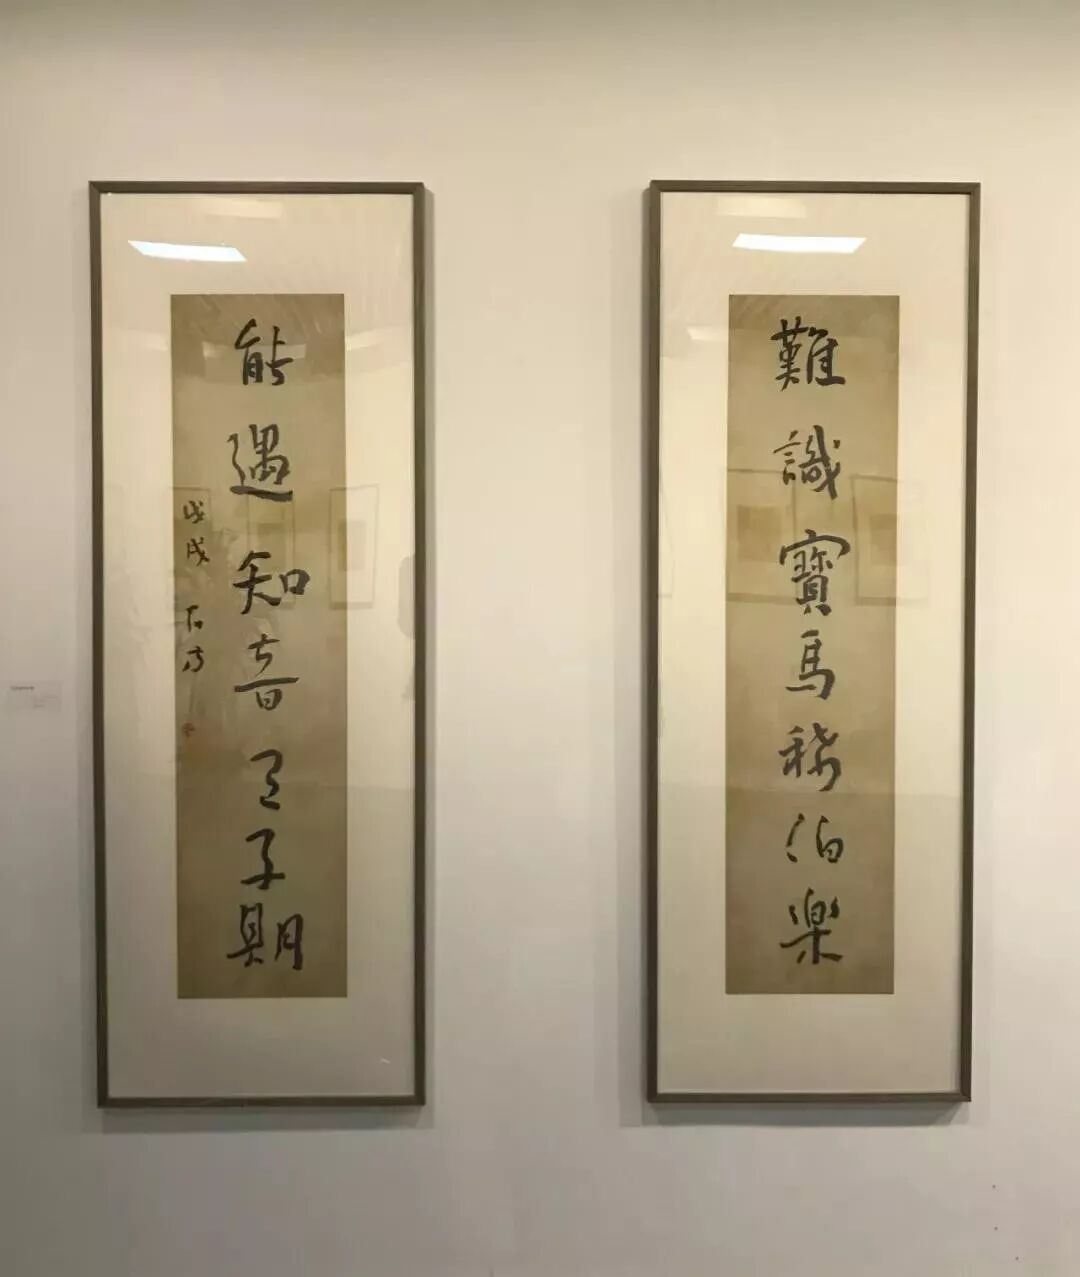 難識寶馬稀伯樂
能遇知音有子期
戊戌 石